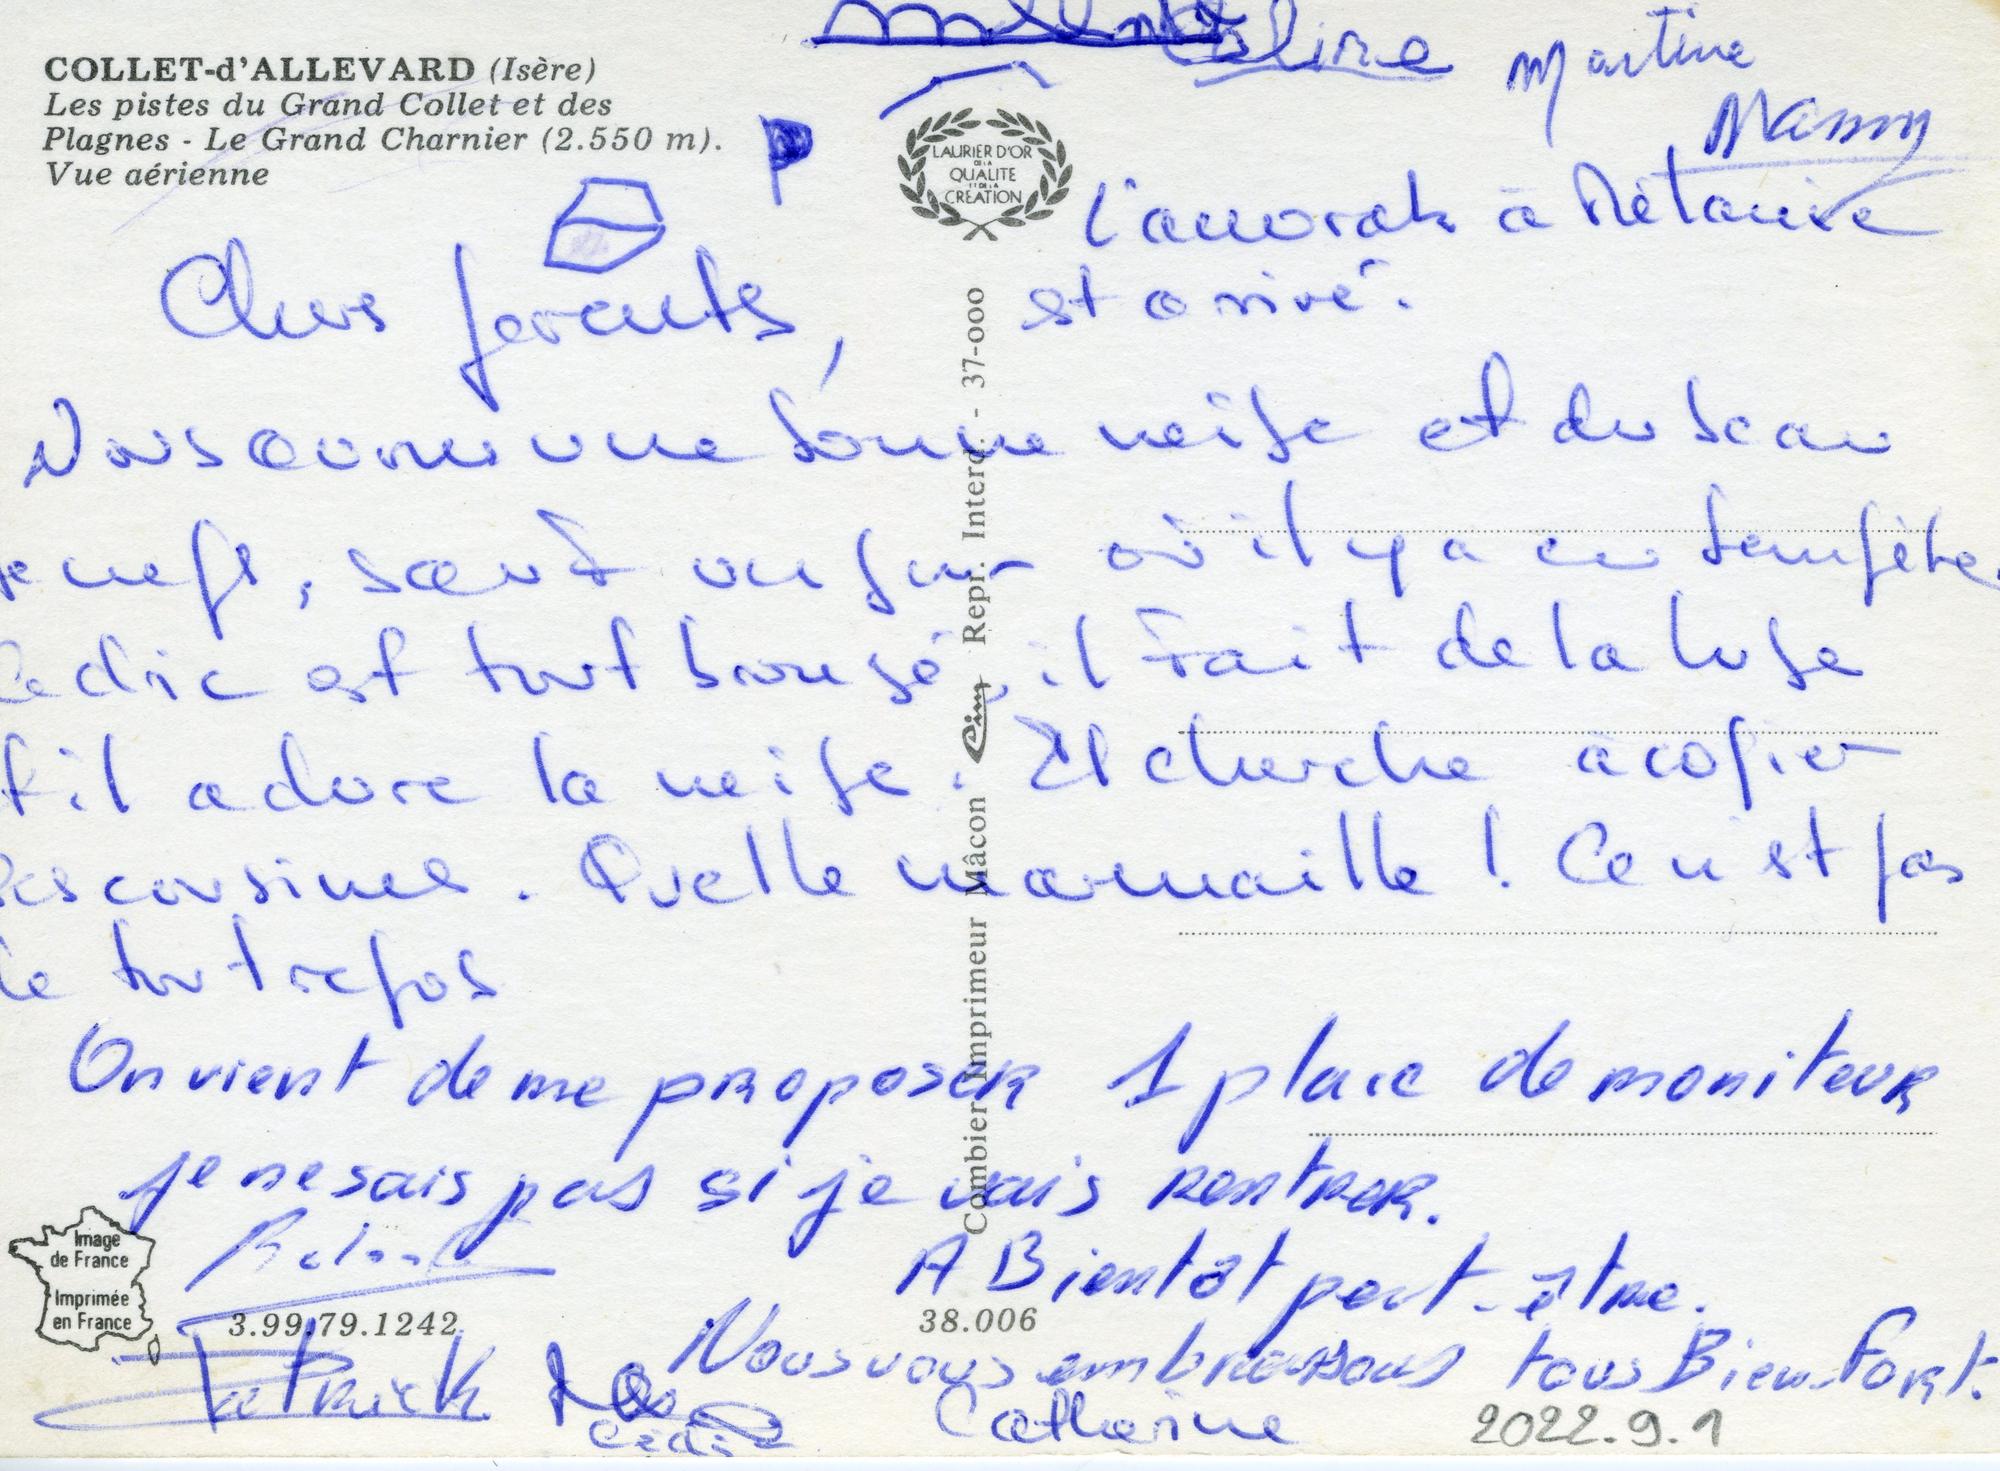 Céline Martine
Manny
COLLET-d'ALLEVARD (Isère)
Les pistes du Grand Collet et des
Plagnes - Le Grand Charnier (2.550 m).
Vue aérienne
P
LAURIER D'OR
DE LA
QUALITE
ET DE LA
CREATION
l'anorak à
est arrivé.
Chers parents,
Nous avons une bonne neige et du beau
temps, sauf un jour où il y a eu tempête.
Cedric est tout bronzé, il fait de la luge
et il adore la neige. Il cherche à copier
ses cousines. Quelle marmaille ! Ce n'est pas
de tout repos
On vient de me proposer 1 place de moniteur
je ne sais pas si je vais rentrer.
A Bientôt peut-être.
Nous vous embrassons tous Bien Fort.
Patrick
Cédric
Catherine
2022.9.1
Image
de France
Imprimée
en France
3.99.79.1242
38.006
Combier Imprimeur Mâcon Cim Repr. Interd. - 37-000